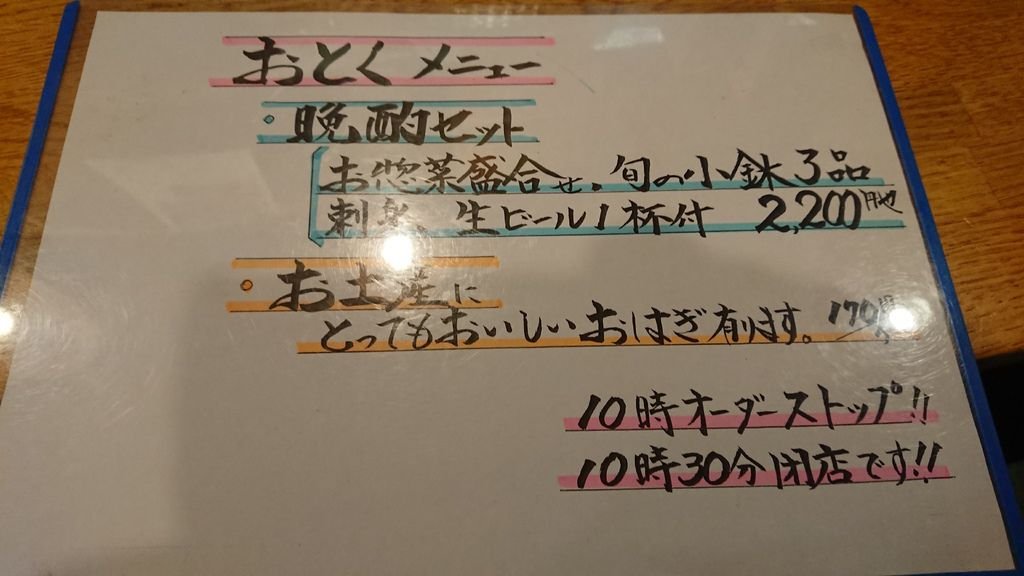 おとくメニュー
・晩酌セット
お惣菜盛合せ、旬の小鉢3品
刺身、生ビール1杯付 2,200円也
・お土産に
とってもおいしいおはぎ有ります。170円
10時オーダーストップ!!
10時30分閉店です!!